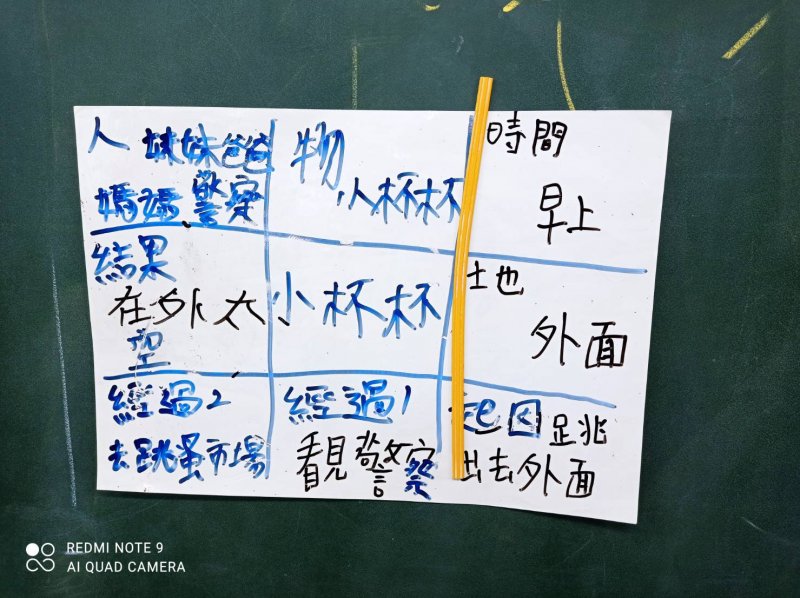 人 妹妹爸爸
媽媽警察
物
小杯杯
時間
早上
結果
在外太
空
小杯杯
地
外面
經過2
去跳蚤市場
經過1
看見警察
起因 跳
出去外面
REDMI NOTE 9
AI QUAD CAMERA